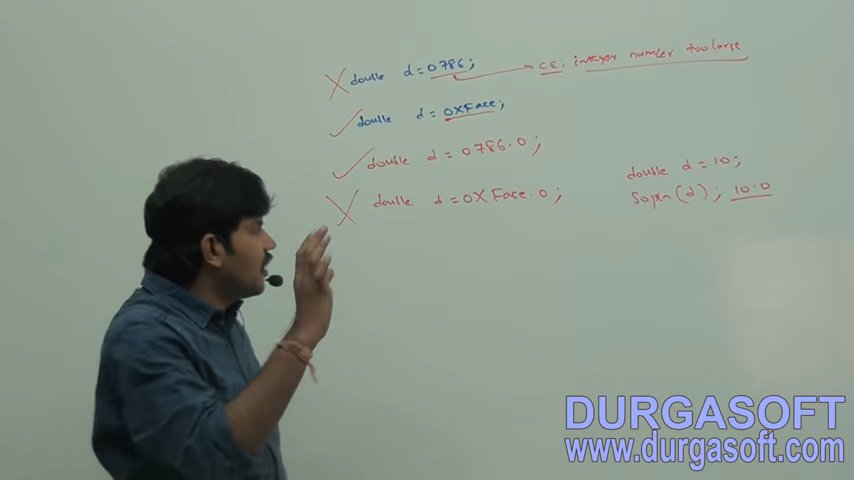 double d = 0786; CE: integer number too large
double d = 0XFace;
double d = 0786.0;
double d = 0XFace.0;
double d = 10;
Sopln(d); 10.0
DURGASOFT
www.durgasoft.com